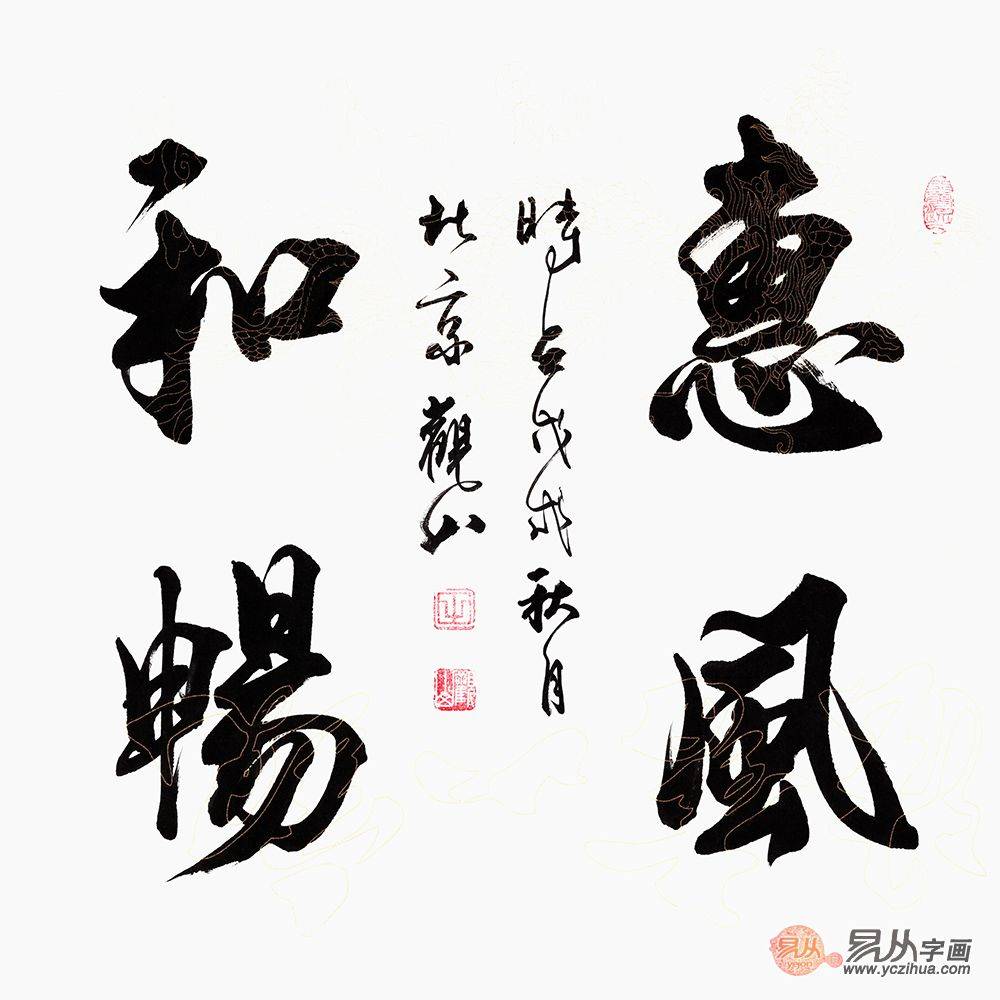 惠風
和暢
時在戊戌秋月
北京觀山
易从字画
www.yczihua.com
yicon